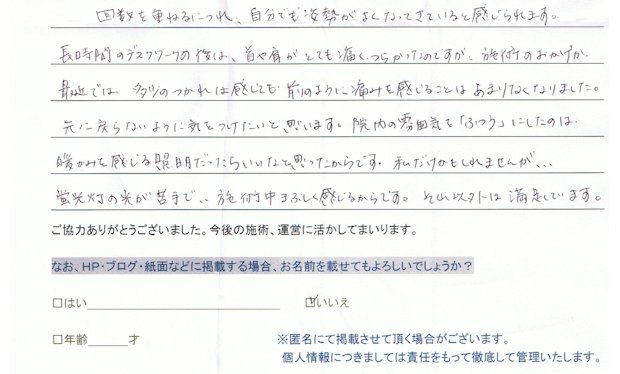 回数を重ねるにつれ、自分でも姿勢がよくなってきていると感じられます。
長時間のデスクワークの後は、首や肩がとても痛くつらかったのですが、施術のおかげか、
最近では 多少のつかれは感じても 前のように痛みを感じることは あまりなくなりました。
元に戻らないように気をつけたいと思います。院内の雰囲気を「ふつう」にしたのは、
暖かみを感じる照明だったらいいなと思ったからです。私だけかもしれませんが、、、
蛍光灯の光が苦手で、、施術中まぶしく感じるからです。それ以外は満足しています。
ご協力ありがとうございました。今後の施術、運営に活かしてまいります。
なお、HP・ブログ・紙面などに掲載する場合、お名前を載せてもよろしいでしょうか？
□はい
☑いいえ
□年齢______才
※匿名にて掲載させて頂く場合がございます。
個人情報につきましては責任をもって徹底して管理いたします。